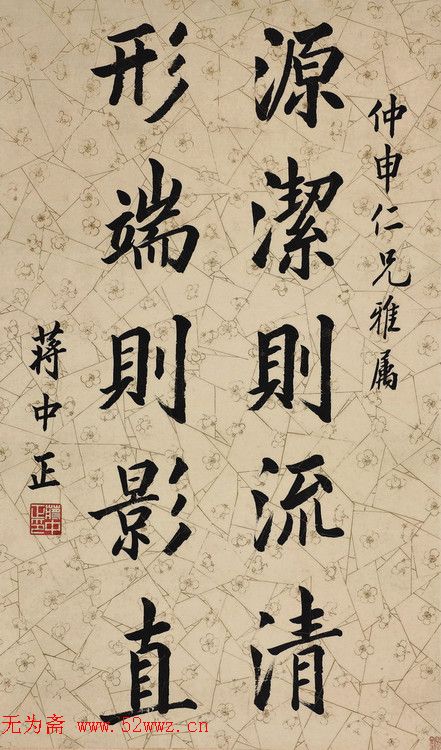 仲申仁兄雅属
源潔則流清
形端則影直
蔣中正
蔣中正印
无为斋 www.52wwz.cn